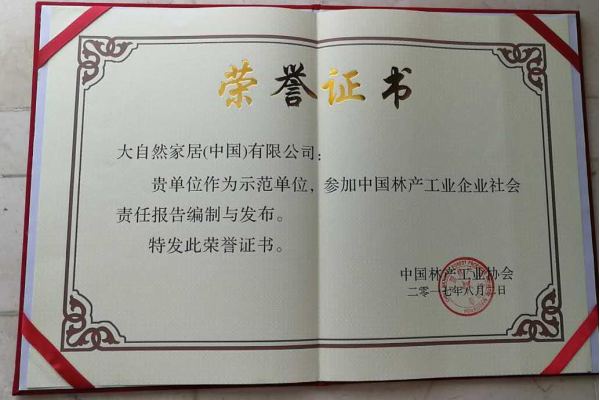 荣誉证书
大自然家居(中国)有限公司:
贵单位作为示范单位，参加中国林产工业企业社会
责任报告编制与发布。
特发此荣誉证书。
中国林产工业协会
二零一七年八月二日